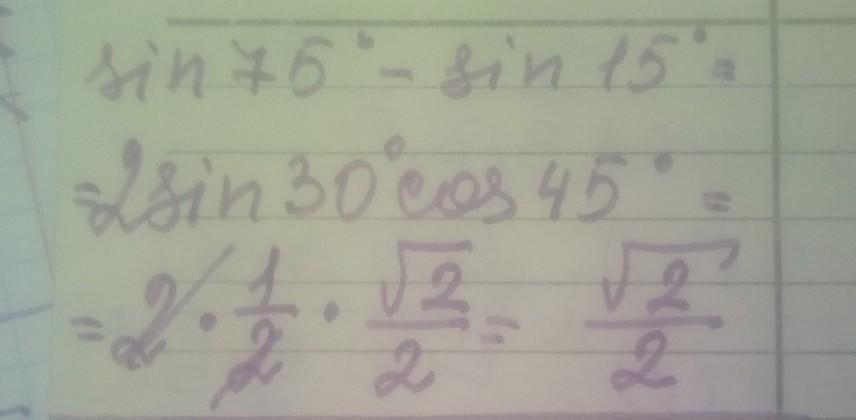 sin 75° - sin 15° =
= 2 sin 30° cos 45° =
= 2 · 1/2 · √2/2 = √2/2